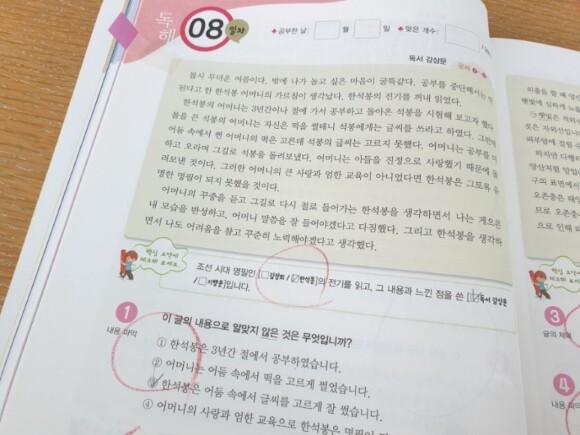 독해
08
일차
공부한 날
월
일
맞은 개수
독서 감상문
몹시 무더운 여름이다. 밖에 나가 놀고 싶은 마음이 굴뚝같다. 공부를 중단해서는
된다고 한 한석봉 어머니의 가르침이 생각났다. 한석봉의 전기를 꺼내 읽었다.
한석봉의 어머니는 3년간이나 절에 가서 공부하고 돌아온 석봉을 시험해 보고자 했다.
불을 끈 석봉의 어머니는 자신은 떡을 썰테니 석봉에게는 글씨를 쓰라고 하였다.
어둠 속에서 썬 어머니의 떡은 고른데 석봉의 글씨는 고르지 못했다. 어머니는 공부를
하고 오라며 그길로 석봉을 돌려보냈다. 어머니는 아들을 진정으로 사랑했기 때문에 돌
려보낸 것이다. 그러한 어머니의 큰 사랑과 엄한 교육이 아니었다면 한석봉은 그토록 유
명한 명필이 되지 못했을 것이다.
어머니의 꾸중을 듣고 그길로 다시 절로 들어가는 한석봉을 생각하면서 나는 게으른
내 모습을 반성하고, 어머니 말씀을 잘 들어야겠다고 다짐했다. 그리고 한석봉을 생각하
면서 나도 어려움을 참고 꾸준히 노력해야겠다고 생각했다.
핵심 요약에
체크해 보세요.
조선 시대 명필인 [□김정희 / □한석봉]의 전기를 읽고, 그 내용과 느낀 점을 쓴 [□독서 감상문
/ □기행문]입니다.
1
이 글의 내용으로 알맞지 않은 것은 무엇입니까?
내용 파악
① 한석봉은 3년간 절에서 공부하였습니다.
② 어머니는 어둠 속에서 떡을 고르게 썰었습니다.
③ 한석봉은 어둠 속에서 글씨를 고르게 잘 썼습니다.
④ 어머니의 사랑과 엄한 교육으로 한석봉은 명필이
3
글의 제목
4
내용 파악